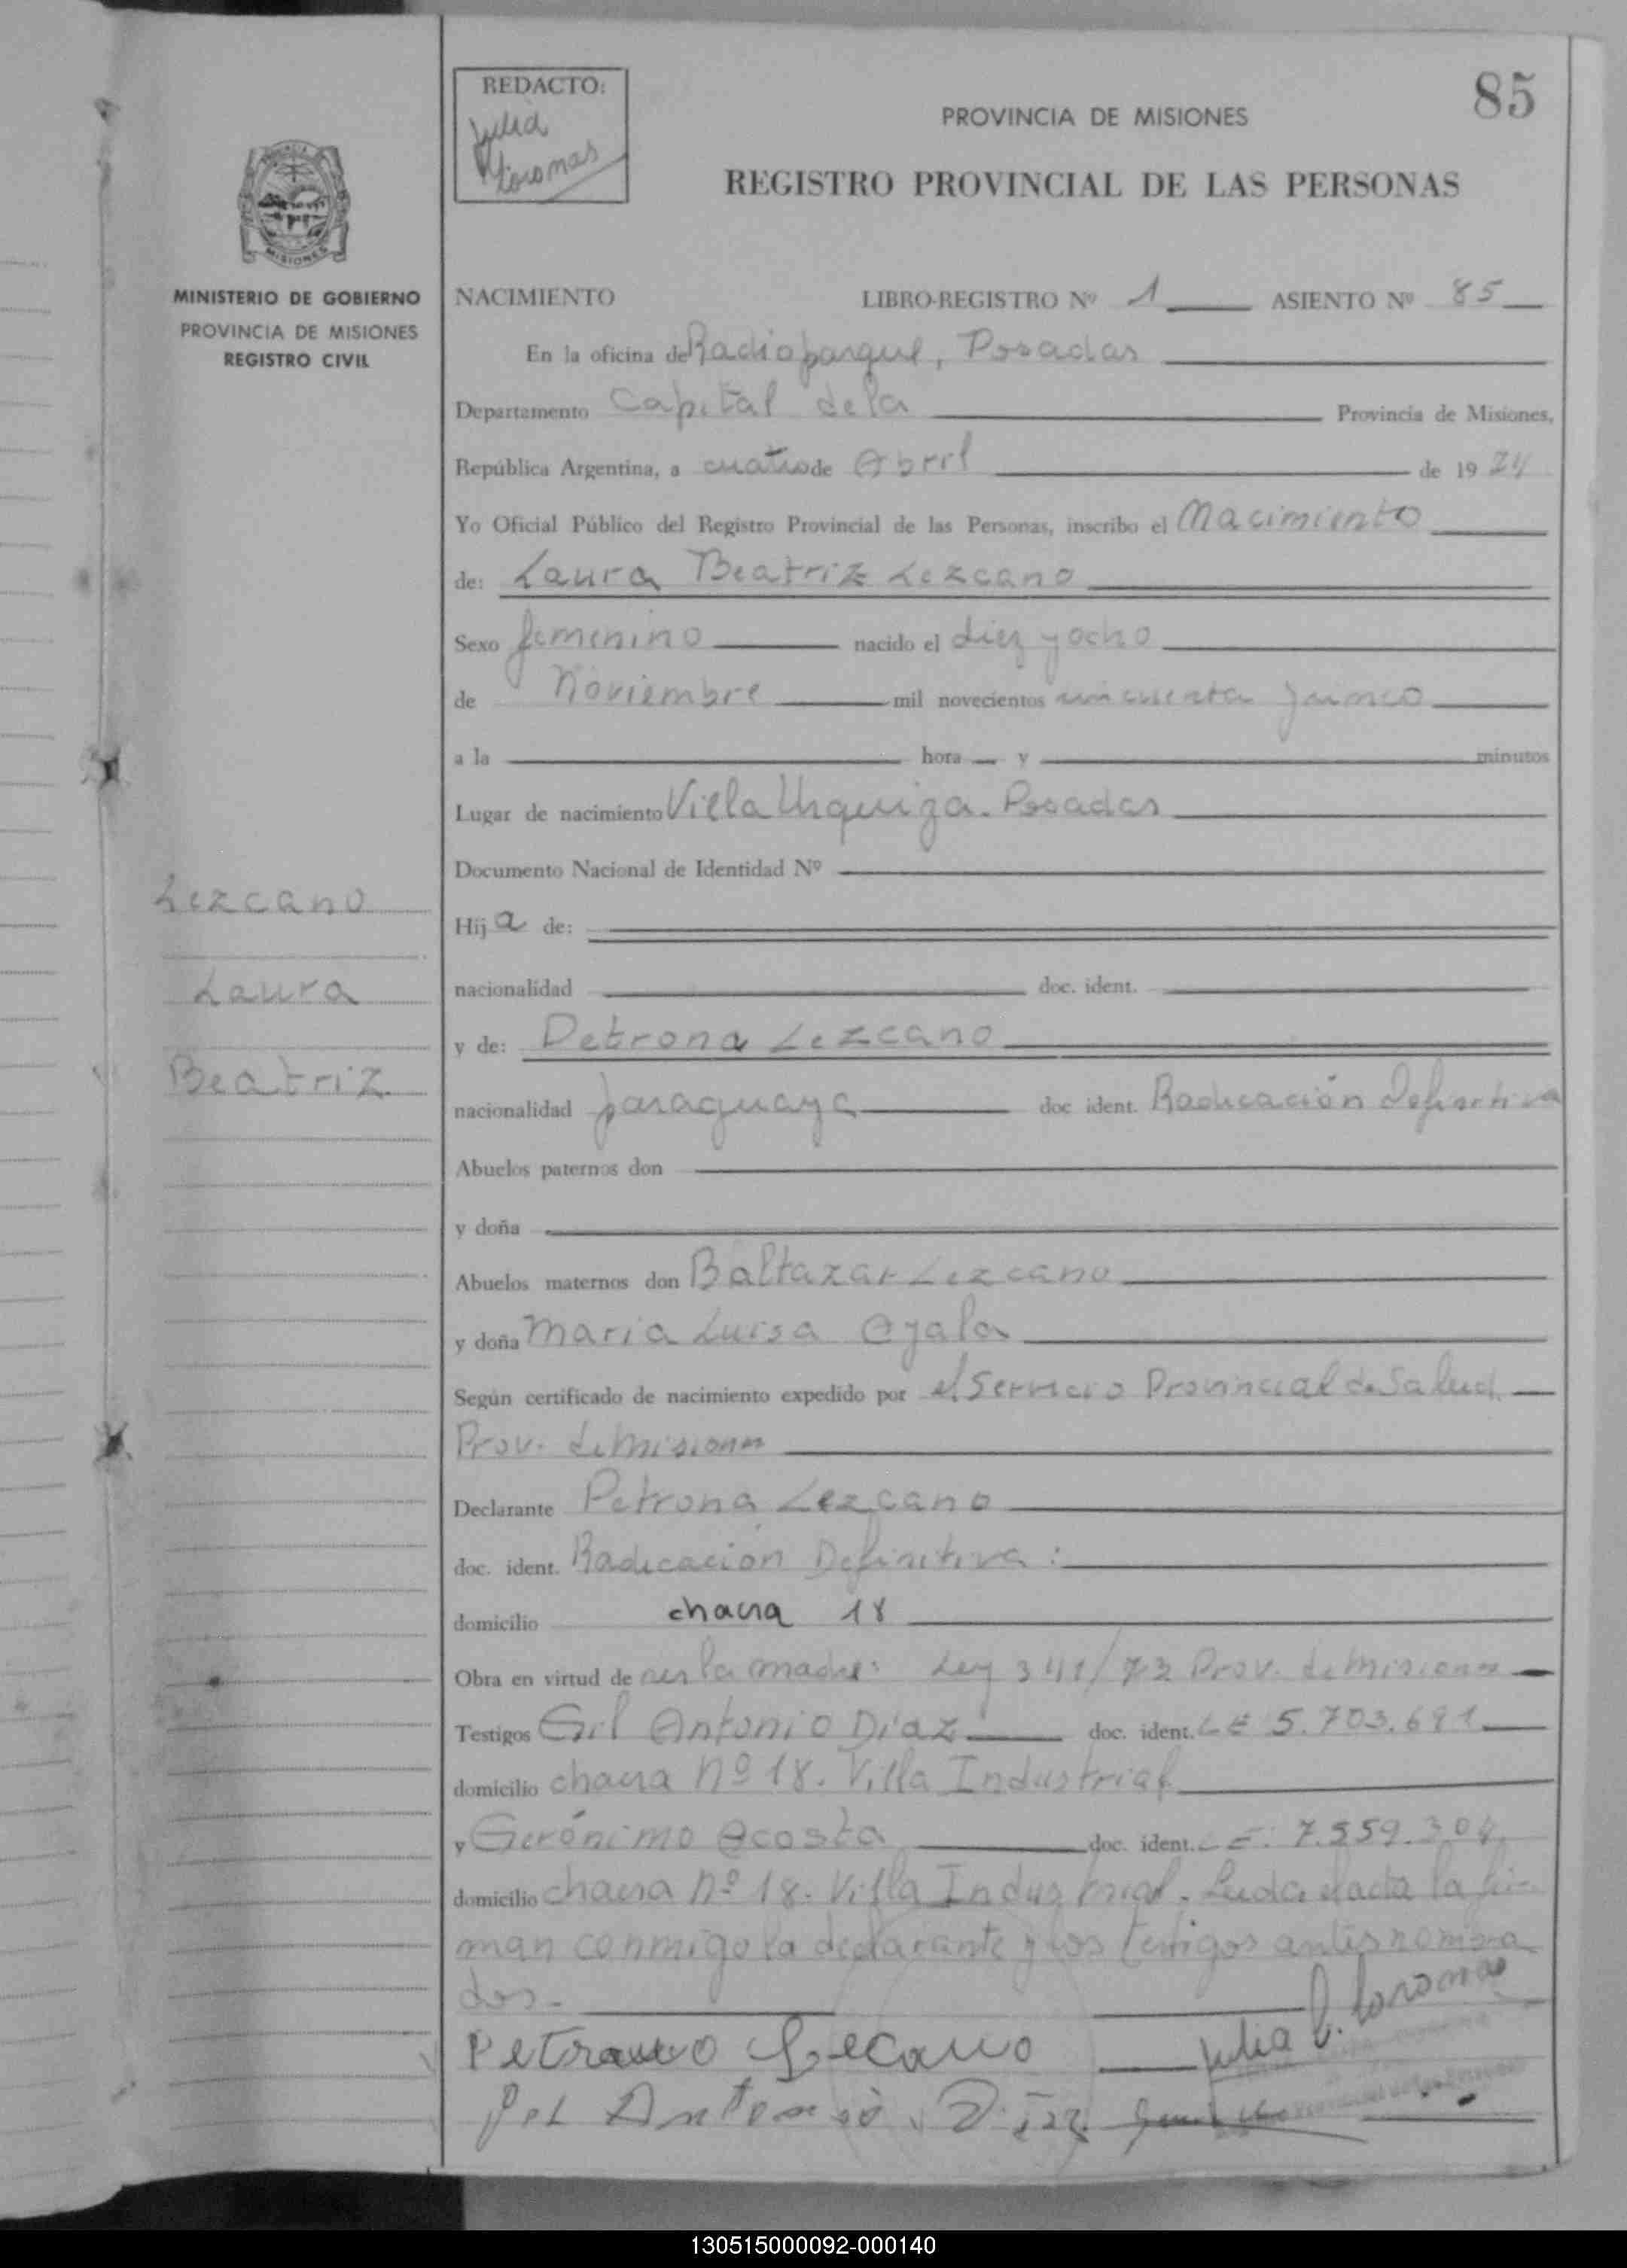 REDACTO:
Julia
85
PROVINCIA DE MISIONES
REGISTRO PROVINCIAL DE LAS PERSONAS
MISIONES
MINISTERIO DE GOBIERNO
PROVINCIA DE MISIONES
REGISTRO CIVIL
NACIMIENTO LIBRO-REGISTRO Nº 1 ASIENTO Nº 85
En la oficina de Radioparque, Posadas
Departamento Capital de la Provincia de Misiones,
República Argentina, a cuatro de Abril de 1974
Yo Oficial Público del Registro Provincial de las Personas, inscribo el Nacimiento
de: Laura Beatriz Lezcano
Sexo femenino nacido el diez y ocho
de Noviembre mil novecientos cincuenta y cinco
a la hora y minutos
Lugar de nacimiento Villa Urquiza. Posadas
Documento Nacional de Identidad Nº
Lezcano
Hija de:
Laura
nacionalidad doc. ident.
y de: Petrona Lezcano
Beatriz
nacionalidad paraguaya doc ident. Radicación Definitiva
Abuelos paternos don
y doña
Abuelos maternos don Baltazar Lezcano
y doña Maria Luisa Ayala
Según certificado de nacimiento expedido por el Servicio Provincial de Salud
Prov. de Misiones
Declarante Petrona Lezcano
doc. ident. Radicación Definitiva:
domicilio chacra 18
Obra en virtud de ser la madre: Ley 341/72 Prov. de Misiones
Testigos Gil Antonio Diaz doc. ident. LE 5.703.691
domicilio chacra Nº 18. Villa Industrial
y Gerónimo Acosta doc. ident. LE: 7.559.304
domicilio chacra Nº 18. Villa Industrial. Leida el acta la fir-
man conmigo la declarante y los testigos antes nombra
dos.-
Petrona Lecano Julia
Gil Antonio Diaz
130515000092-000140